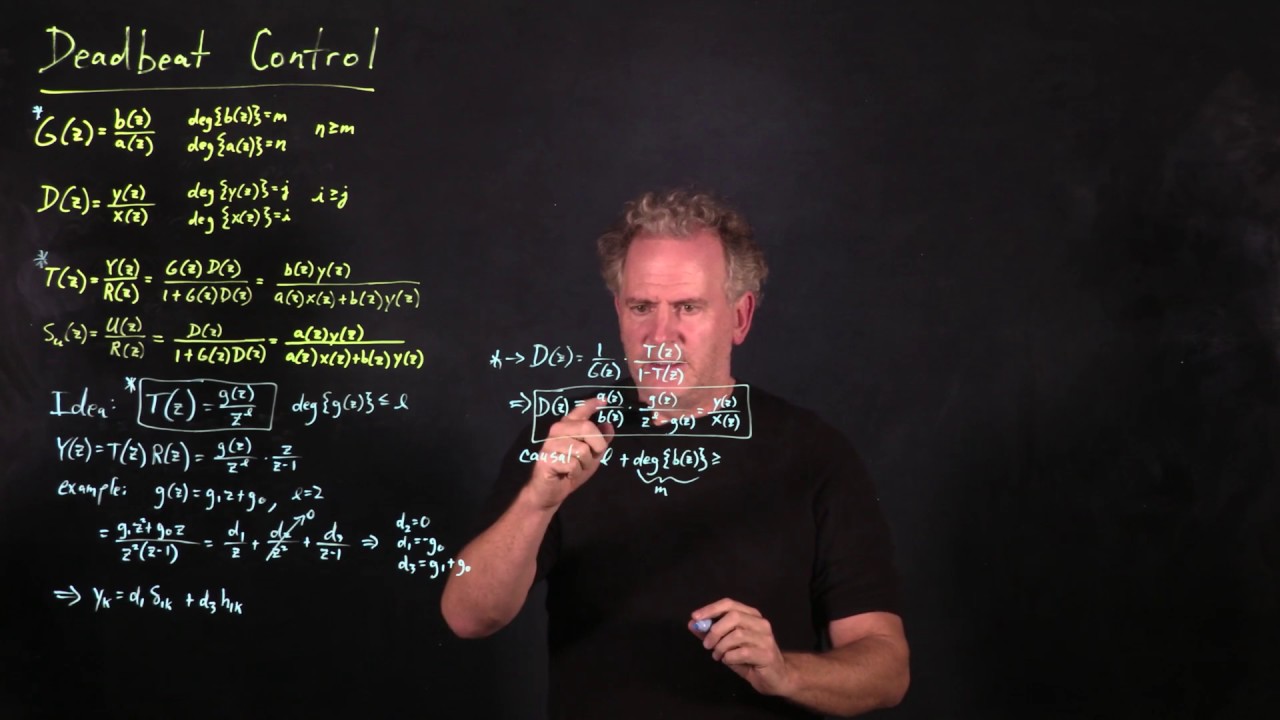 Deadbeat Control
* G(z) = b(z)/a(z) deg{b(z)}=m deg{a(z)}=n n≥m
D(z) = y(z)/x(z) deg{y(z)}=j deg{x(z)}=i i≥j
* T(z) = Y(z)/R(z) = G(z)D(z)/1+G(z)D(z) = b(z)y(z)/a(z)x(z)+b(z)y(z)
Su(z) = U(z)/R(z) = D(z)/1+G(z)D(z) = a(z)y(z)/a(z)x(z)+b(z)y(z)
Idea: * T(z) = g(z)/z^ℓ deg{g(z)} ≤ ℓ
Y(z) = T(z) R(z) = g(z)/z^ℓ · z/z-1
example: g(z) = g₁z+g₀, ℓ=2
= g₁z²+g₀z/z²(z-1) = d₁/z + d₂/z² →0 + d₃/z-1 ⇒ d₂=0 d₁=-g₀ d₃=g₁+g₀
⇒ yₖ = d₁ δ₁ₖ + d₃ h₁ₖ
* → D(z) = 1/G(z) · T(z)/1-T(z)
⇒ D(z) = a(z)/b(z) · g(z)/z^ℓ-g(z) = y(z)/x(z)
causal: ℓ + deg{b(z)} ≥
m